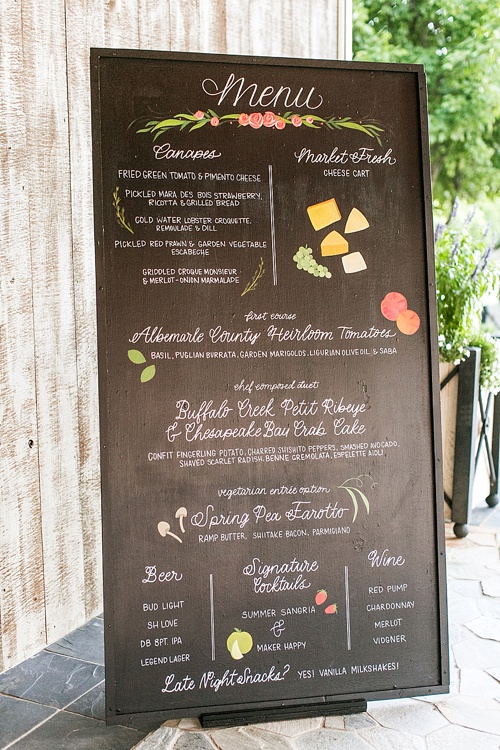 Menu
Canapes
FRIED GREEN TOMATO & PIMENTO CHEESE
PICKLED MARA DES BOIS STRAWBERRY,
RICOTTA & GRILLED BREAD
COLD WATER LOBSTER CROQUETTE,
REMOULADE & DILL
PICKLED RED PRAWN & GARDEN VEGETABLE
ESCABECHE
GRIDDLED CROQUE MONSIEUR
& MERLOT-ONION MARMALADE
Market Fresh
CHEESE CART
first course
Albemarle County Heirloom Tomatoes
BASIL, PUGLIAN BURRATA, GARDEN MARIGOLDS, LIGURIAN OLIVE OIL & SABA
chef composed duet
Buffalo Creek Petit Ribeye
& Chesapeake Bay Crab Cake
CONFIT FINGERLING POTATO, CHARRED SHISHITO PEPPERS, SMASHED AVOCADO,
SHAVED SCARLET RADISH, BENNE GREMOLATA, ESPELETTE AIOLI
vegetarian entrée option
Spring Pea Farotto
RAMP BUTTER, SHIITAKE BACON, PARMIGIANO
Beer
BUD LIGHT
SH LOVE
DB 8PT. IPA
LEGEND LAGER
Signature
Cocktails
SUMMER SANGRIA
&
MAKER HAPPY
Wine
RED PUMP
CHARDONNAY
MERLOT
VIOGNER
Late Night Snacks? YES! VANILLA MILKSHAKES!